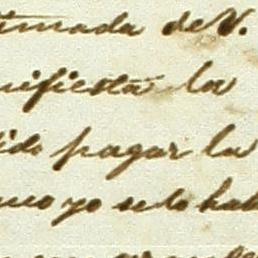 timada de V.
nifiesta la
ido pagar la
uco yo se lo hab